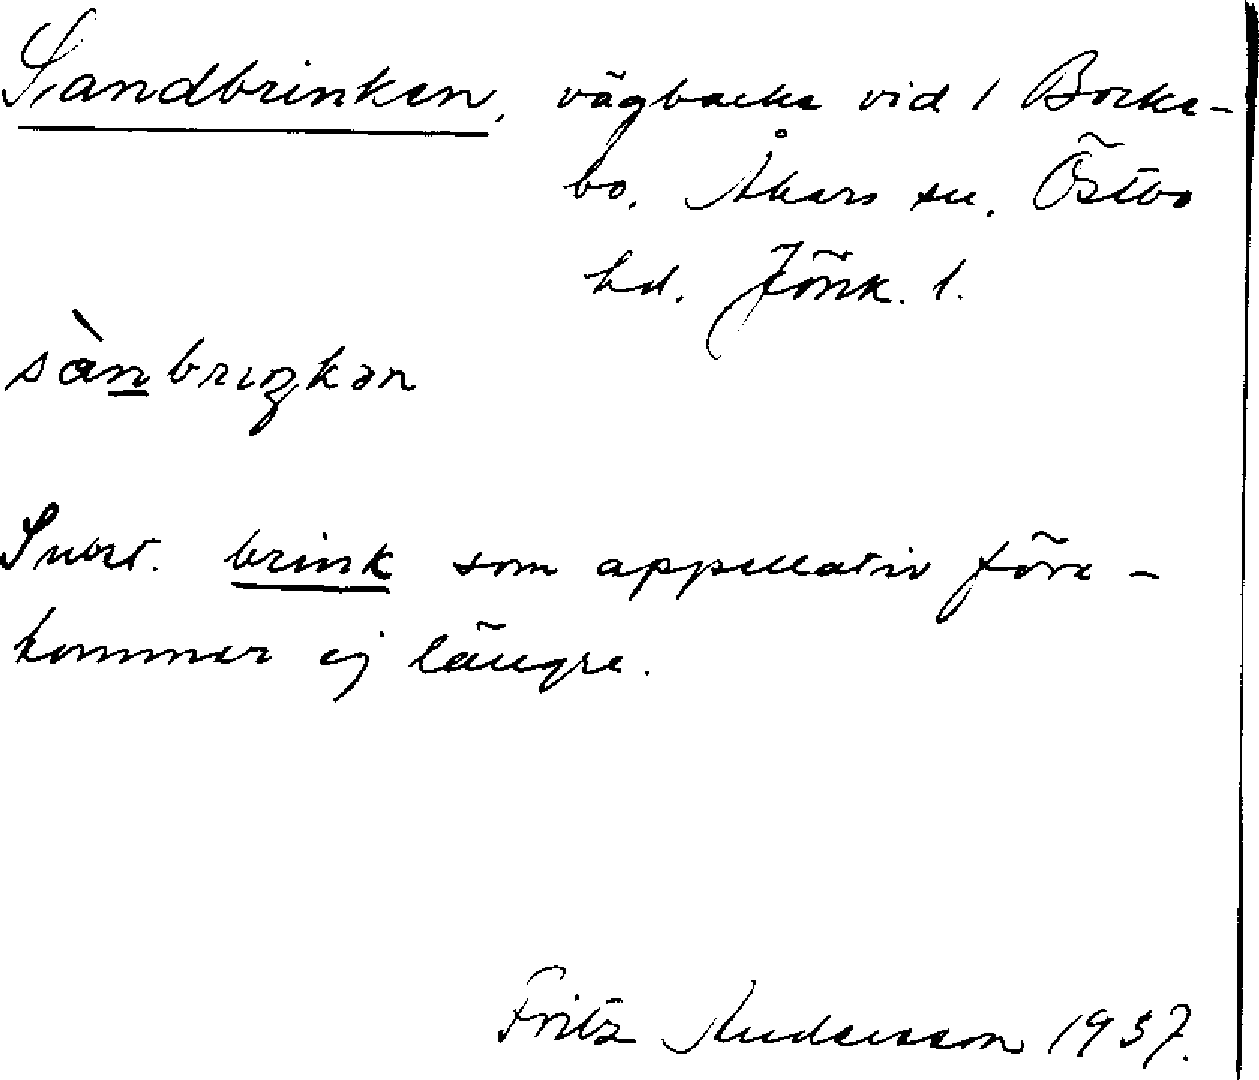 Sandbrinken, vägbacke vid 1 Bocke-
bo. Åkers sn. Östbo
hd. Jönk. l.
sànbrıŋkən
Subst. brink som appellativ före-
kommer ej längre.
Fritz Andersson 1937.